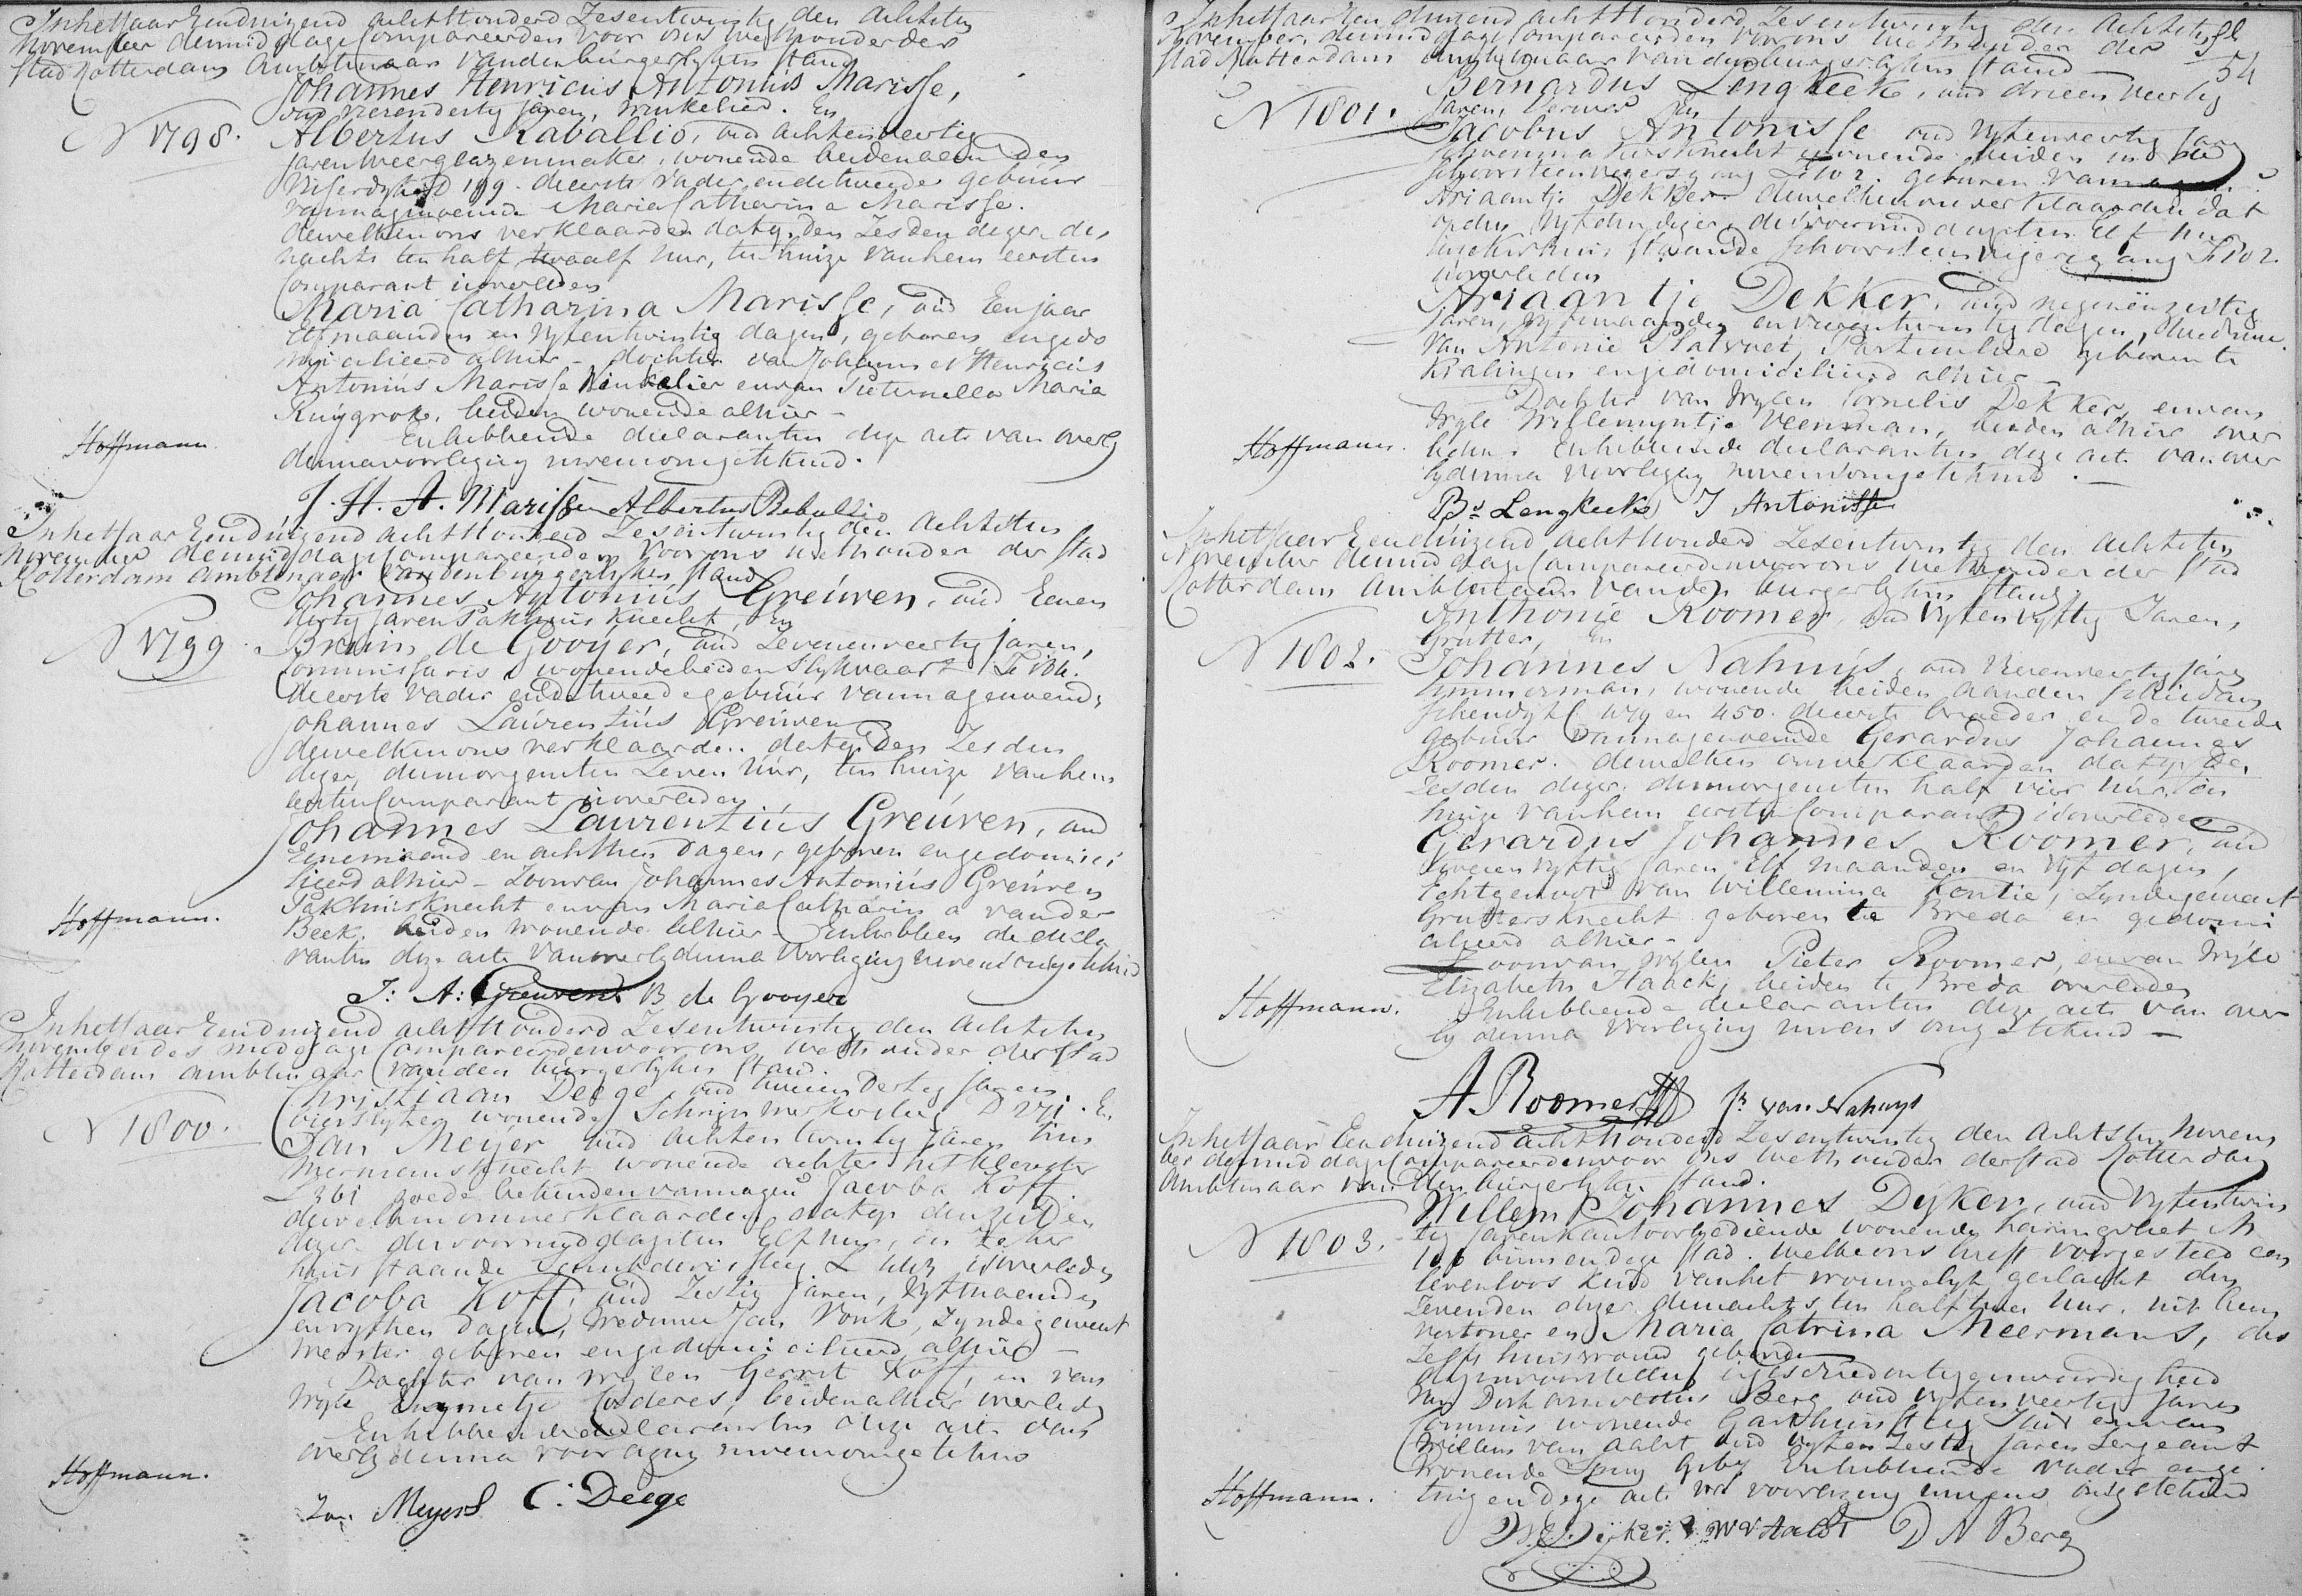 In het Jaar Eenduizend achtHonderd Zesentwintig den Achtsten
November demiddags Compareerden voor ons Wethouder der
Stad Rotterdam Ambtenaar van den burgerlyken stand
Johannes Henricus Antonius Marisse,
oud vierendertig Jaren, winkelier. En
N 1798.
Albertus Raballio, oud achtenveertig
Jaren Weerglazenmaker, wonende beiden aan den
Visserdyk D 189. de eerste Vader en de tweede gebuur
van nagenoemde Maria Catharina Marisse.
dewelken ons verklaarden dat op den Zesden dezer des
nachts ten half twaalf uur, ten huize van hem eersten
Comparant is overleden
Maria Catharina Marisse, oud Een jaar
Elf maanden en vyfentwintig dagen, geboren en gedo
micilieerd alhier - dochter van Johannes Henricus
Antonius Marisse Winkelier en van Pieternella Maria
Ruygrok, beiden wonende alhier -
Hoffmann
En hebben de declaranten deze acte van overly
den na voorlezing nevens ons getekend.
J. H. A. Marisse Albertus Raballio
In het Jaar Eenduizend achtHonderd Zesentwintig den Achtsten
November demiddags Compareerden voor ons wethouder der Stad
Rotterdam ambtenaar van den burgerlyken Stand
Johannes Antonius Greuven, oud Eenen
dertig Jaren Pakhuis Knecht, En
N 1799.
Bruin de Gooyer, oud Zevenenveertig Jaren,
Commissaris wonende beiden Slykvaart
de eerste vader en de tweede gebuur van nagenoemde
Johannes Laurentius Greuven
dewelken ons verklaarden dat op den Zesden
dezer, des morgens ten Zeven uur, ten huize van hem
eersten Comparant is overleden
Johannes Laurentius Greuven, oud
Eene maand en achttien dagen, geboren en gedomici
lieerd alhier - Zoon van Johannes Antonius Greuven
Pakhuisknecht en van Maria Catharina vander
Hoffmann.
Beek, beiden wonende alhier - En hebben de decla
ranten deze acte van overlyden na voorlezing nevens ons getekend
J: A: Greuven B de Gooyer
In het Jaar Eenduizend achtHonderd Zesentwintig den Achtsten
November des middags Compareerden voor ons wethouder der Stad
Rotterdam ambtenaar van den burgerlyken stand.
Christiaan Deege, oud tweeendertig Jaren
N 1800.
wonende D 271. En
Jan Meyer oud achtentwintig Jaren tim
mermansknecht wonende achter het Klooster
L 361 goede bekenden van nagend Jacoba Koff
dewelken ons verklaarden dat op den zesden
dezer des voormiddags ten Elf uur, in zeker
huis staande is overleden
Jacoba Koff, oud Zestig Jaren, Vyf maenden
en vyftien dagen, weduwe Jan Vonk, Zynde geweest
meester geboren en gedomicilieerd alhier -
Dochter van wylen Gerrit Koff, en van
wyle beiden alhier overleden
En hebben de declaranten deze acte van
overlyden na voorlezing nevens ons getekend
Hoffmann.
Jan Meyers C: Deege
In het Jaar Eenduizend achtHonderd Zesentwintig den Achtsten
November, demiddags Compareerden voor ons Wethouder der
54
Stad Rotterdam Ambtenaar van den burgerlyken stand
Bernardus Lengkeek, oud drieenveertig
N 1801.
Jaren, Verwer En
Jacobus Antonisse oud Vyfenveertig Jaren
schoenmakersknecht wonende beiden in de
Schoorsteenvegersgang F 102. geburen van
Ariaantje Dekker. dewelken ons verklaarden dat
op den Vyfden dezer, des voormiddags ten Elf uur
in zeker huis staande Schoorsteenvegersgang F 102.
is overleden
Ariaantje Dekker, oud negenenzestig
Jaren, Vyf maanden en vierentwintig dagen, Weduwe
van Antonie Particuliere geboren te
Kralingen en gedomicilieerd alhier -
Dochter van Wylen Cornelis Dekker, en van
Wyle Willemyntje Veenman, beiden alhier over
Hoffmann.
leden. En hebben de declaranten deze acte van over
lyden na voorlezing nevens ons getekend. -
Bs Lengkeek J Antonisse
In het Jaar Eenduizend achtHonderd Zesentwintig den Achtsten
November demiddags Compareerden voor ons wethouder der Stad
Rotterdam Ambtenaar van den burgerlyken Stand
Anthonie Roomer, oud vyfenvyftig Jaren,
Grutter, En
N 1802.
Johannes Nahuys, oud Vierenveertig Jaren
timmerman, wonende beiden aan den Schiedam
schendyk 449 en 450. de eerste broeder en de tweede
gebuur van nagenoemde Gerardus Johannes
Roomer. dewelken ons verklaarden dat op den
Zesden dezer, des morgens ten half vier uur, ten
huize van hem eersten Comparant is overleden
Gerardus Johannes Roomer, oud
Jaren Elf maanden en Vyf dagen,
Echtgenoot van Willemina Zynde geweest
Gruttersknecht geboren te Breda en gedomi
cilieerd alhier -
Zoon van wylen Pieter Roomer, en van Wyle
Elizabeth Haack, beiden te Breda overleden
Hoffmann.
En hebben de declaranten deze acte van over
lyden na voorlezing nevens ons getekend -
A Roomer Js van Nahuys
In het Jaar Eenduizend achtHonderd Zesentwintig den Achtsten Novem
ber demiddags Compareerden voor ons wethouder der stad Rotterdam
Ambtenaar van den burgerlyken stand.
Willem Johannes Dyker, oud Vyfentwin
tig Jaren Kantoorbediende wonende haringvliet
N 1803.
binnen deze stad. welke ons heeft voorgesteld een
levenloos Kind van het vrouwelyk geslacht den
Zevenden dezer des nachts ten half twee uur, uit hem
vertoner en Maria Catrina Meermans, des
zelfs huisvrouw geboren
deze voorstelling is geschied in tegenwoordigheid
van Dirk Berg oud vyfenveertig Jaren
Commis wonende en van
Willem van Aalst oud vyfenzestig Jaren Sergeant
wonende En hebben de vader en ge
Hoffmann.
tuigen deze acte na voorlezing nevens ons getekend
W J Dyker. W V Aalst D A Berg